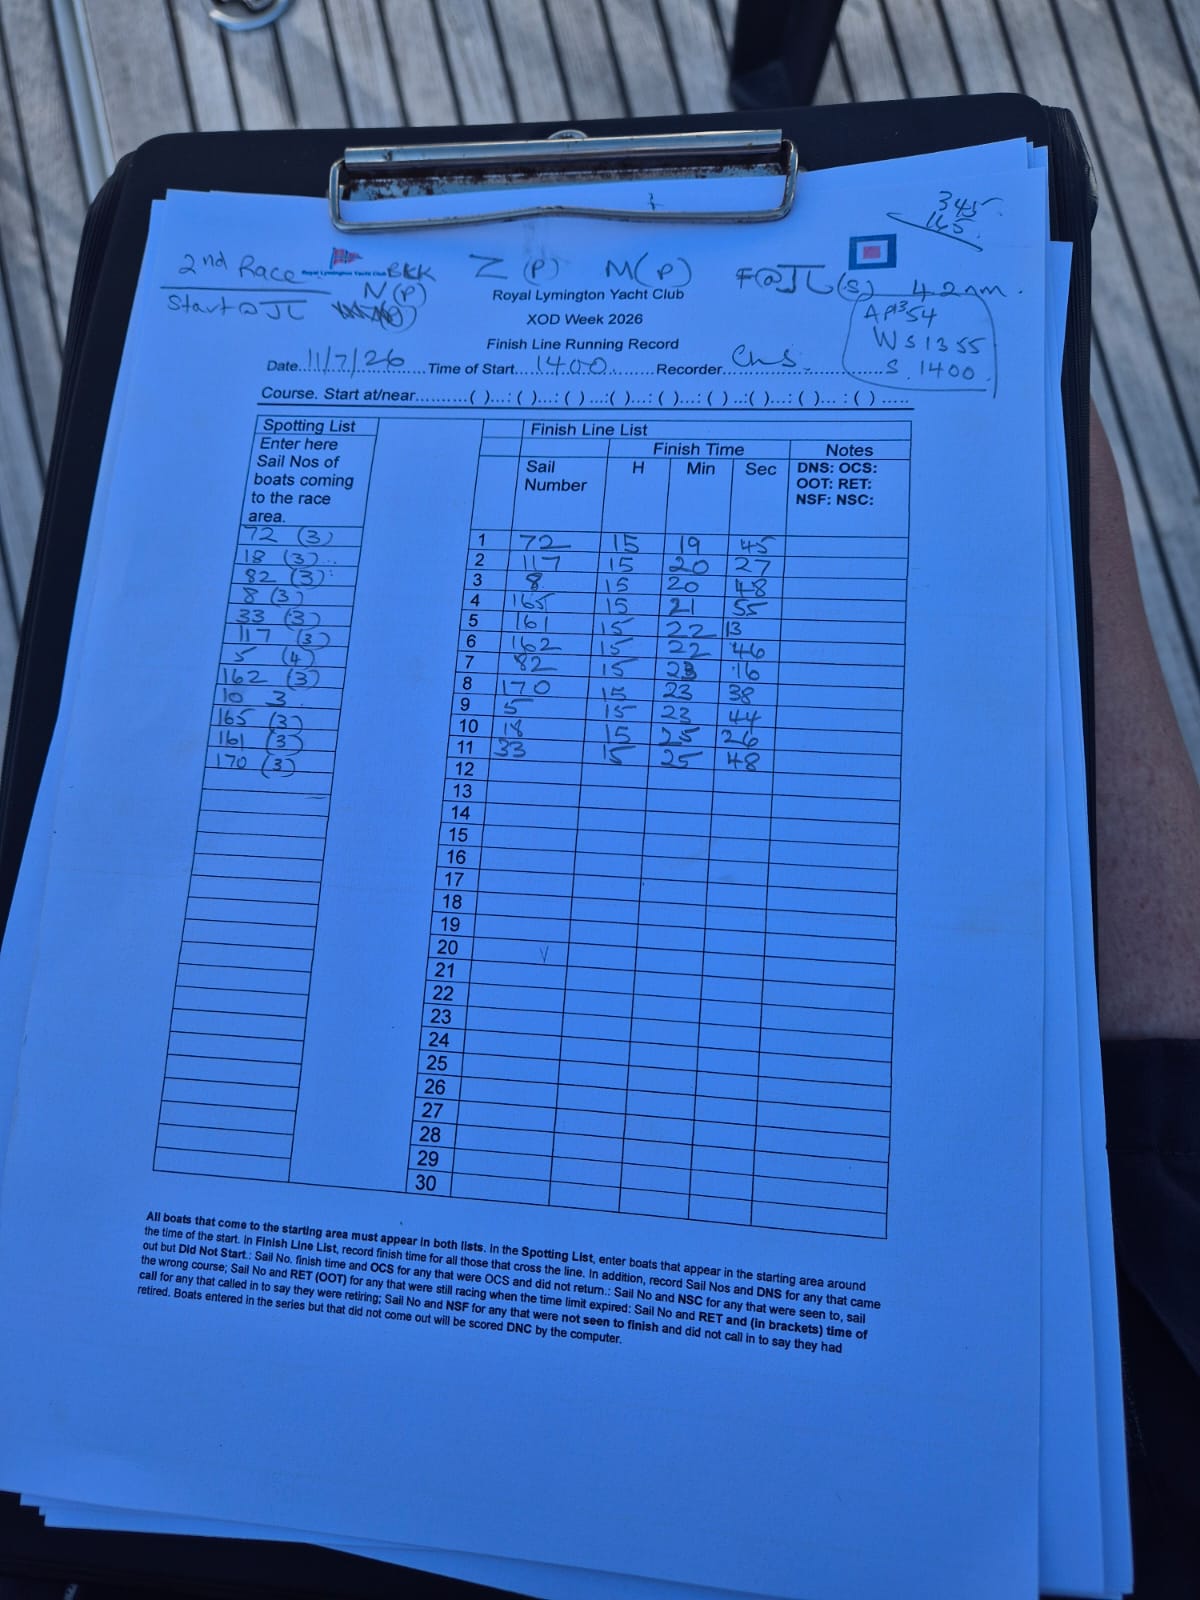 345
165
2nd Race Royal Lymington Yacht Club BLK Z (P) M(P) F@JL(S) 4.2nm.
Start@JL N(P)
AP 1354
WS 1355
S. 1400
Royal Lymington Yacht Club
XOD Week 2026
Finish Line Running Record
Date..11/7/26..Time of Start....1400....Recorder....
Course. Start at/near..........( )...:( )...:( )...:( )...:( )...:( )...:( )...:( )...:( ).....
Spotting List
Enter here
Sail Nos of
boats coming
to the race
area.
72 (3)
18 (3)
82 (3)
8 (3)
33 (3)
117 (3)
5 (4)
162 (3)
10 3
165 (3)
161 (3)
170 (3)
Finish Line List
Finish Time Notes
Sail Number H Min Sec DNS: OCS: OOT: RET: NSF: NSC:
1 72 15 19 45
2 117 15 20 27
3 8 15 20 48
4 165 15 21 55
5 161 15 22 13
6 162 15 22 46
7 82 15 23 16
8 170 15 23 38
9 5 15 23 44
10 18 15 25 26
11 33 15 25 48
12
13
14
15
16
17
18
19
20
21
22
23
24
25
26
27
28
29
30
All boats that come to the starting area must appear in both lists. In the Spotting List, enter boats that appear in the starting area around
the time of the start. In Finish Line List, record finish time for all those that cross the line. In addition, record Sail Nos and DNS for any that came
out but Did Not Start.: Sail No. finish time and OCS for any that were OCS and did not return.: Sail No and NSC for any that were seen to, sail
the wrong course; Sail No and RET (OOT) for any that were still racing when the time limit expired: Sail No and RET and (in brackets) time of
call for any that called in to say they were retiring; Sail No and NSF for any that were not seen to finish and did not call in to say they had
retired. Boats entered in the series but that did not come out will be scored DNC by the computer.